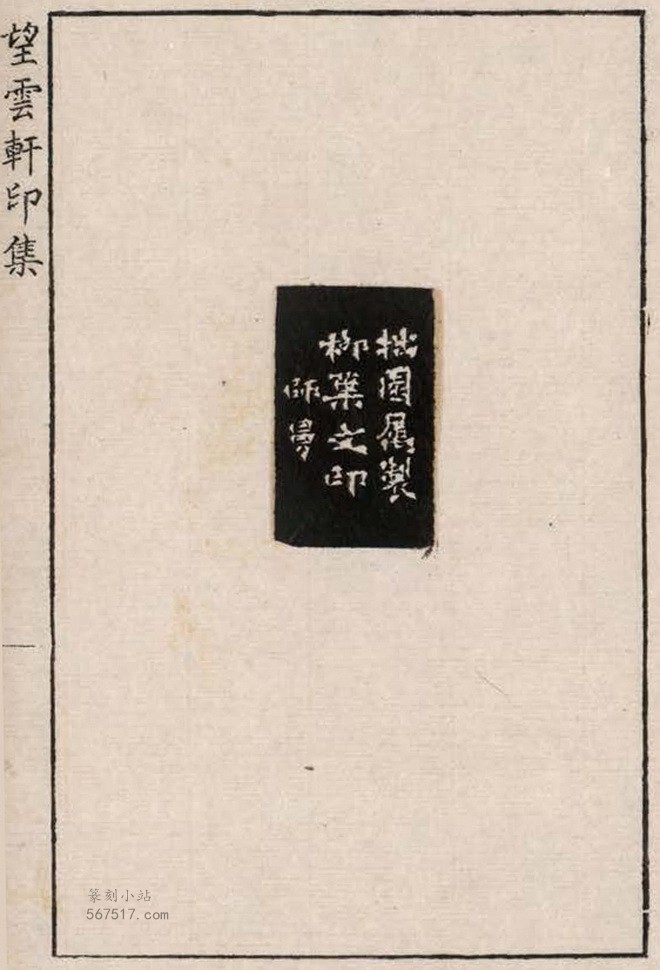 望雲軒印集
拙園屬製
柳葉文印
師曼
篆刻小站
567517.com